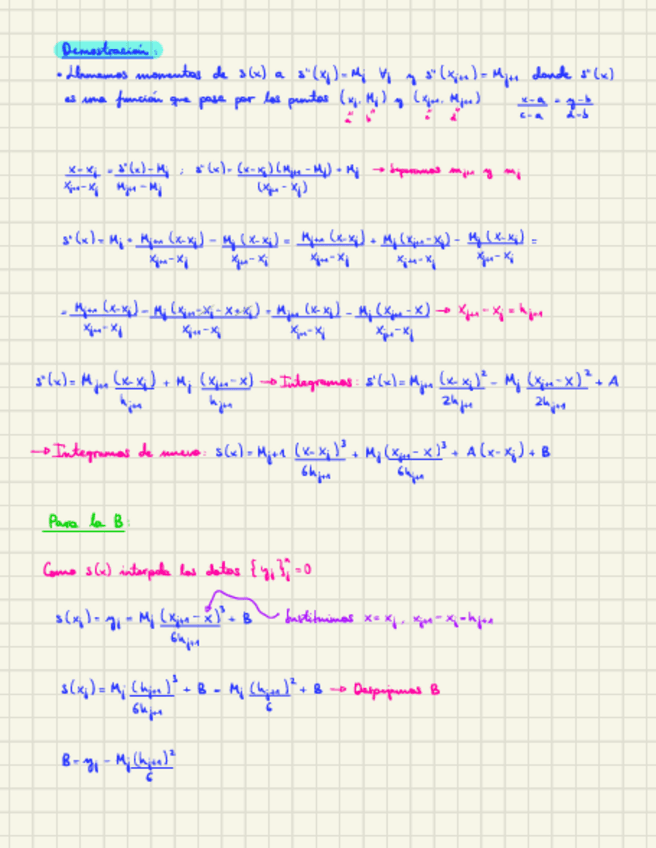 Demostración:
• Llamamos momentos de s(x) a s''(xⱼ) = Mⱼ ∀j y s''(xⱼ₊₁) = Mⱼ₊₁ donde s''(x)
es una función que pasa por los puntos (xⱼ, Mⱼ) y (xⱼ₊₁, Mⱼ₊₁) (x-a)/(c-a) = (y-b)/(d-b)
"a" "b" "c" "d"
(x-xⱼ)/(xⱼ₊₁-xⱼ) = (s''(x)-Mⱼ)/(Mⱼ₊₁-Mⱼ) ; s''(x) = (x-xⱼ)(Mⱼ₊₁-Mⱼ)/(xⱼ₊₁-xⱼ) + Mⱼ → Separamos mⱼ₊₁ y mⱼ
s''(x) = Mⱼ + Mⱼ₊₁(x-xⱼ)/(xⱼ₊₁-xⱼ) - Mⱼ(x-xⱼ)/(xⱼ₊₁-xⱼ) = Mⱼ₊₁(x-xⱼ)/(xⱼ₊₁-xⱼ) + Mⱼ(xⱼ₊₁-xⱼ)/(xⱼ₊₁-xⱼ) - Mⱼ(x-xⱼ)/(xⱼ₊₁-xⱼ) =
= Mⱼ₊₁(x-xⱼ)/(xⱼ₊₁-xⱼ) - Mⱼ(xⱼ₊₁-xⱼ-x+xⱼ)/(xⱼ₊₁-xⱼ) = Mⱼ₊₁(x-xⱼ)/(xⱼ₊₁-xⱼ) - Mⱼ(xⱼ₊₁-x)/(xⱼ₊₁-xⱼ) → xⱼ₊₁ - xⱼ = hⱼ₊₁
s''(x) = Mⱼ₊₁ (x-xⱼ)/hⱼ₊₁ + Mⱼ (xⱼ₊₁-x)/hⱼ₊₁ → Integramos: s'(x) = Mⱼ₊₁ (x-xⱼ)²/2hⱼ₊₁ - Mⱼ (xⱼ₊₁-x)²/2hⱼ₊₁ + A
→ Integramos de nuevo: s(x) = Mⱼ₊₁ (x-xⱼ)³/6hⱼ₊₁ + Mⱼ (xⱼ₊₁-x)³/6hⱼ₊₁ + A(x-xⱼ) + B
Para la B:
Como s(x) interpola los datos {yⱼ}ⁿⱼ=0
s(xⱼ) = yⱼ = Mⱼ (xⱼ₊₁-x)³/6hⱼ₊₁ + B Sustituimos x = xⱼ, xⱼ₊₁ - xⱼ = hⱼ₊₁
s(xⱼ) = Mⱼ (hⱼ₊₁)³/6hⱼ₊₁ + B = Mⱼ (hⱼ₊₁)²/6 + B → Despejamos B
B = yⱼ - Mⱼ(hⱼ₊₁)²/6